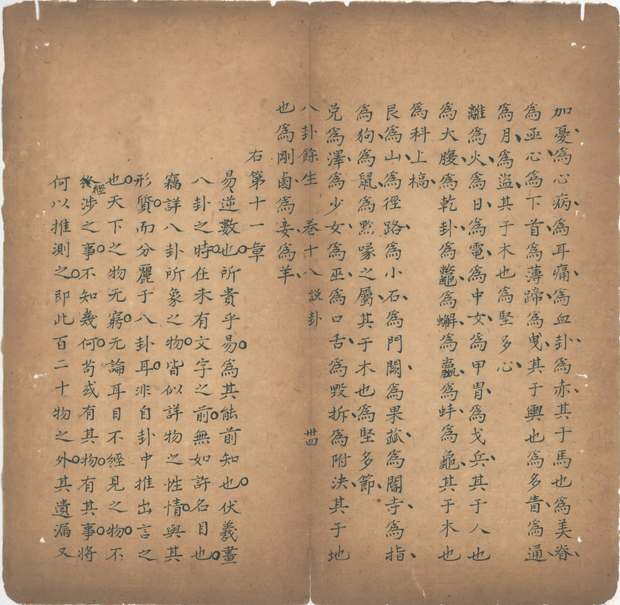 加憂為心病為耳痛為血卦為赤其于馬也為美脊
為亟心為下首為薄蹄為曳其于輿也為多眚為通
為月為盜其于木也為堅多心
離為火為日為電為中女為甲胄為戈兵其于人也
為大腹為乾卦為鼈為蠏為蠃為蚌為龜其于木也
為科上槁
艮為山為徑路為小石為門闕為果蓏為閽寺為指
為狗為鼠為黔喙之屬其于木也為堅多節
兌為澤為少女為巫為口舌為毀折為附决其于地
也為剛鹵為妾為羊
八卦餘生 卷十八 說卦 卅四
右第十一章
易逆數也所貴乎易為其能前知也伏羲畫
八卦之時在未有文字之前無如許名目也
竊詳八卦所象之物皆似詳物之性情與其
形質而分麗于八卦耳非自卦中推出言之
也天下之物无窮无論耳目不經見之物不
經涉之事不知幾何苟或有其物有其事將
何以推測之即此百二十物之外其遺漏又